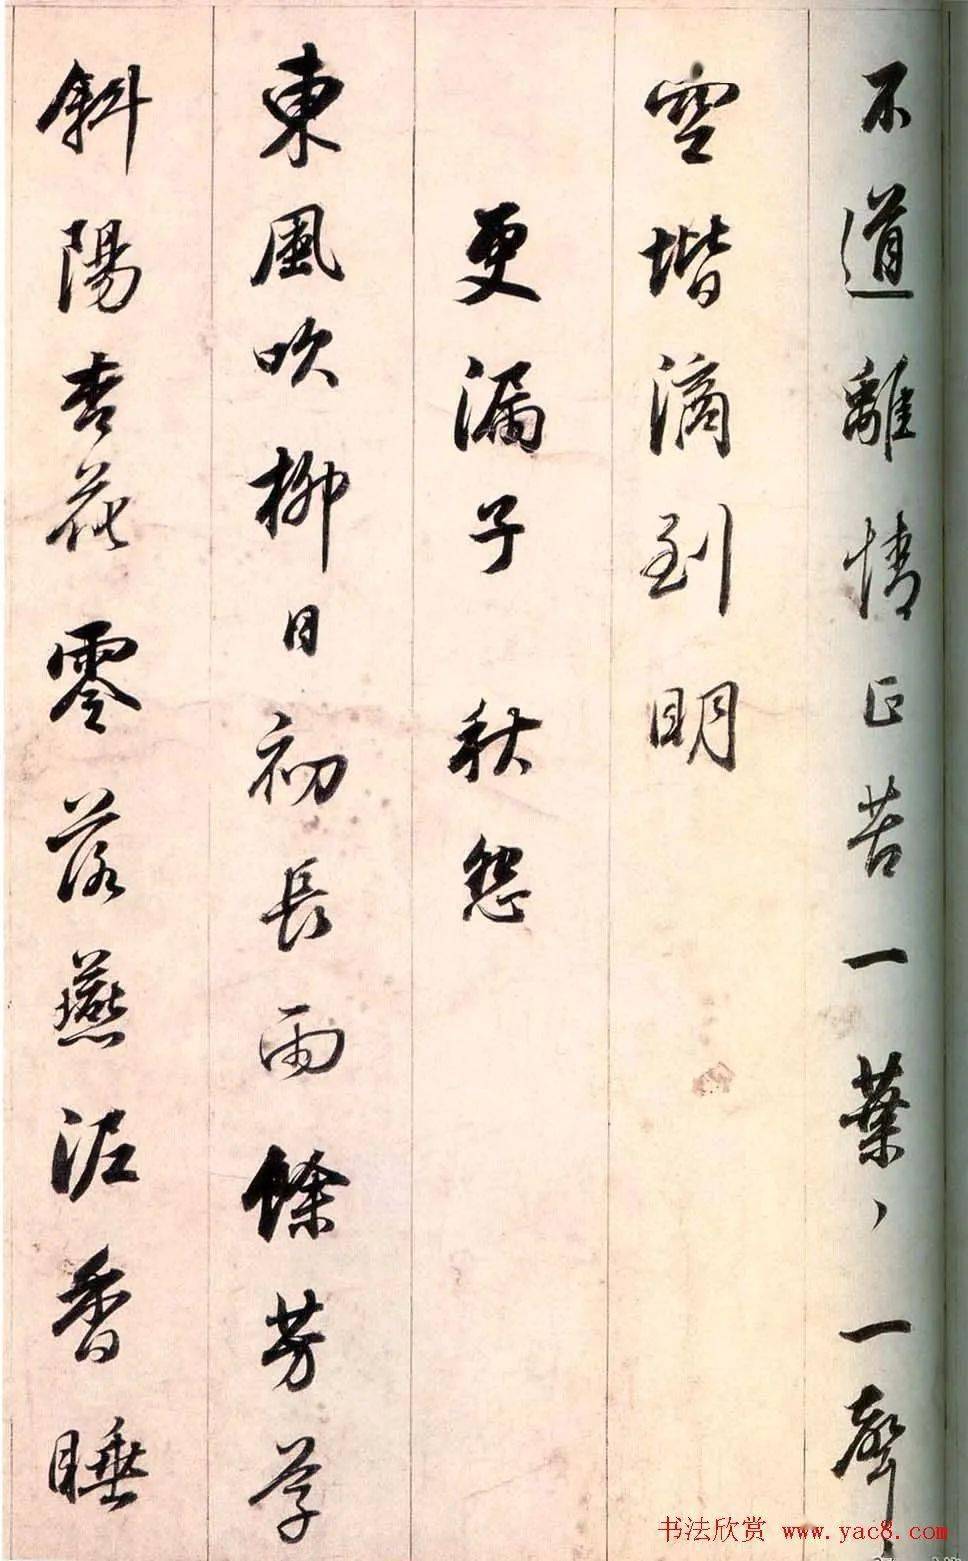 不道離情正苦一葉〻一聲〻
空堦滴到明
更漏子 秋怨
東風吹柳日初長雨餘芳草
斜陽杏花零落燕泥香睡
书法欣赏 www.yac8.com